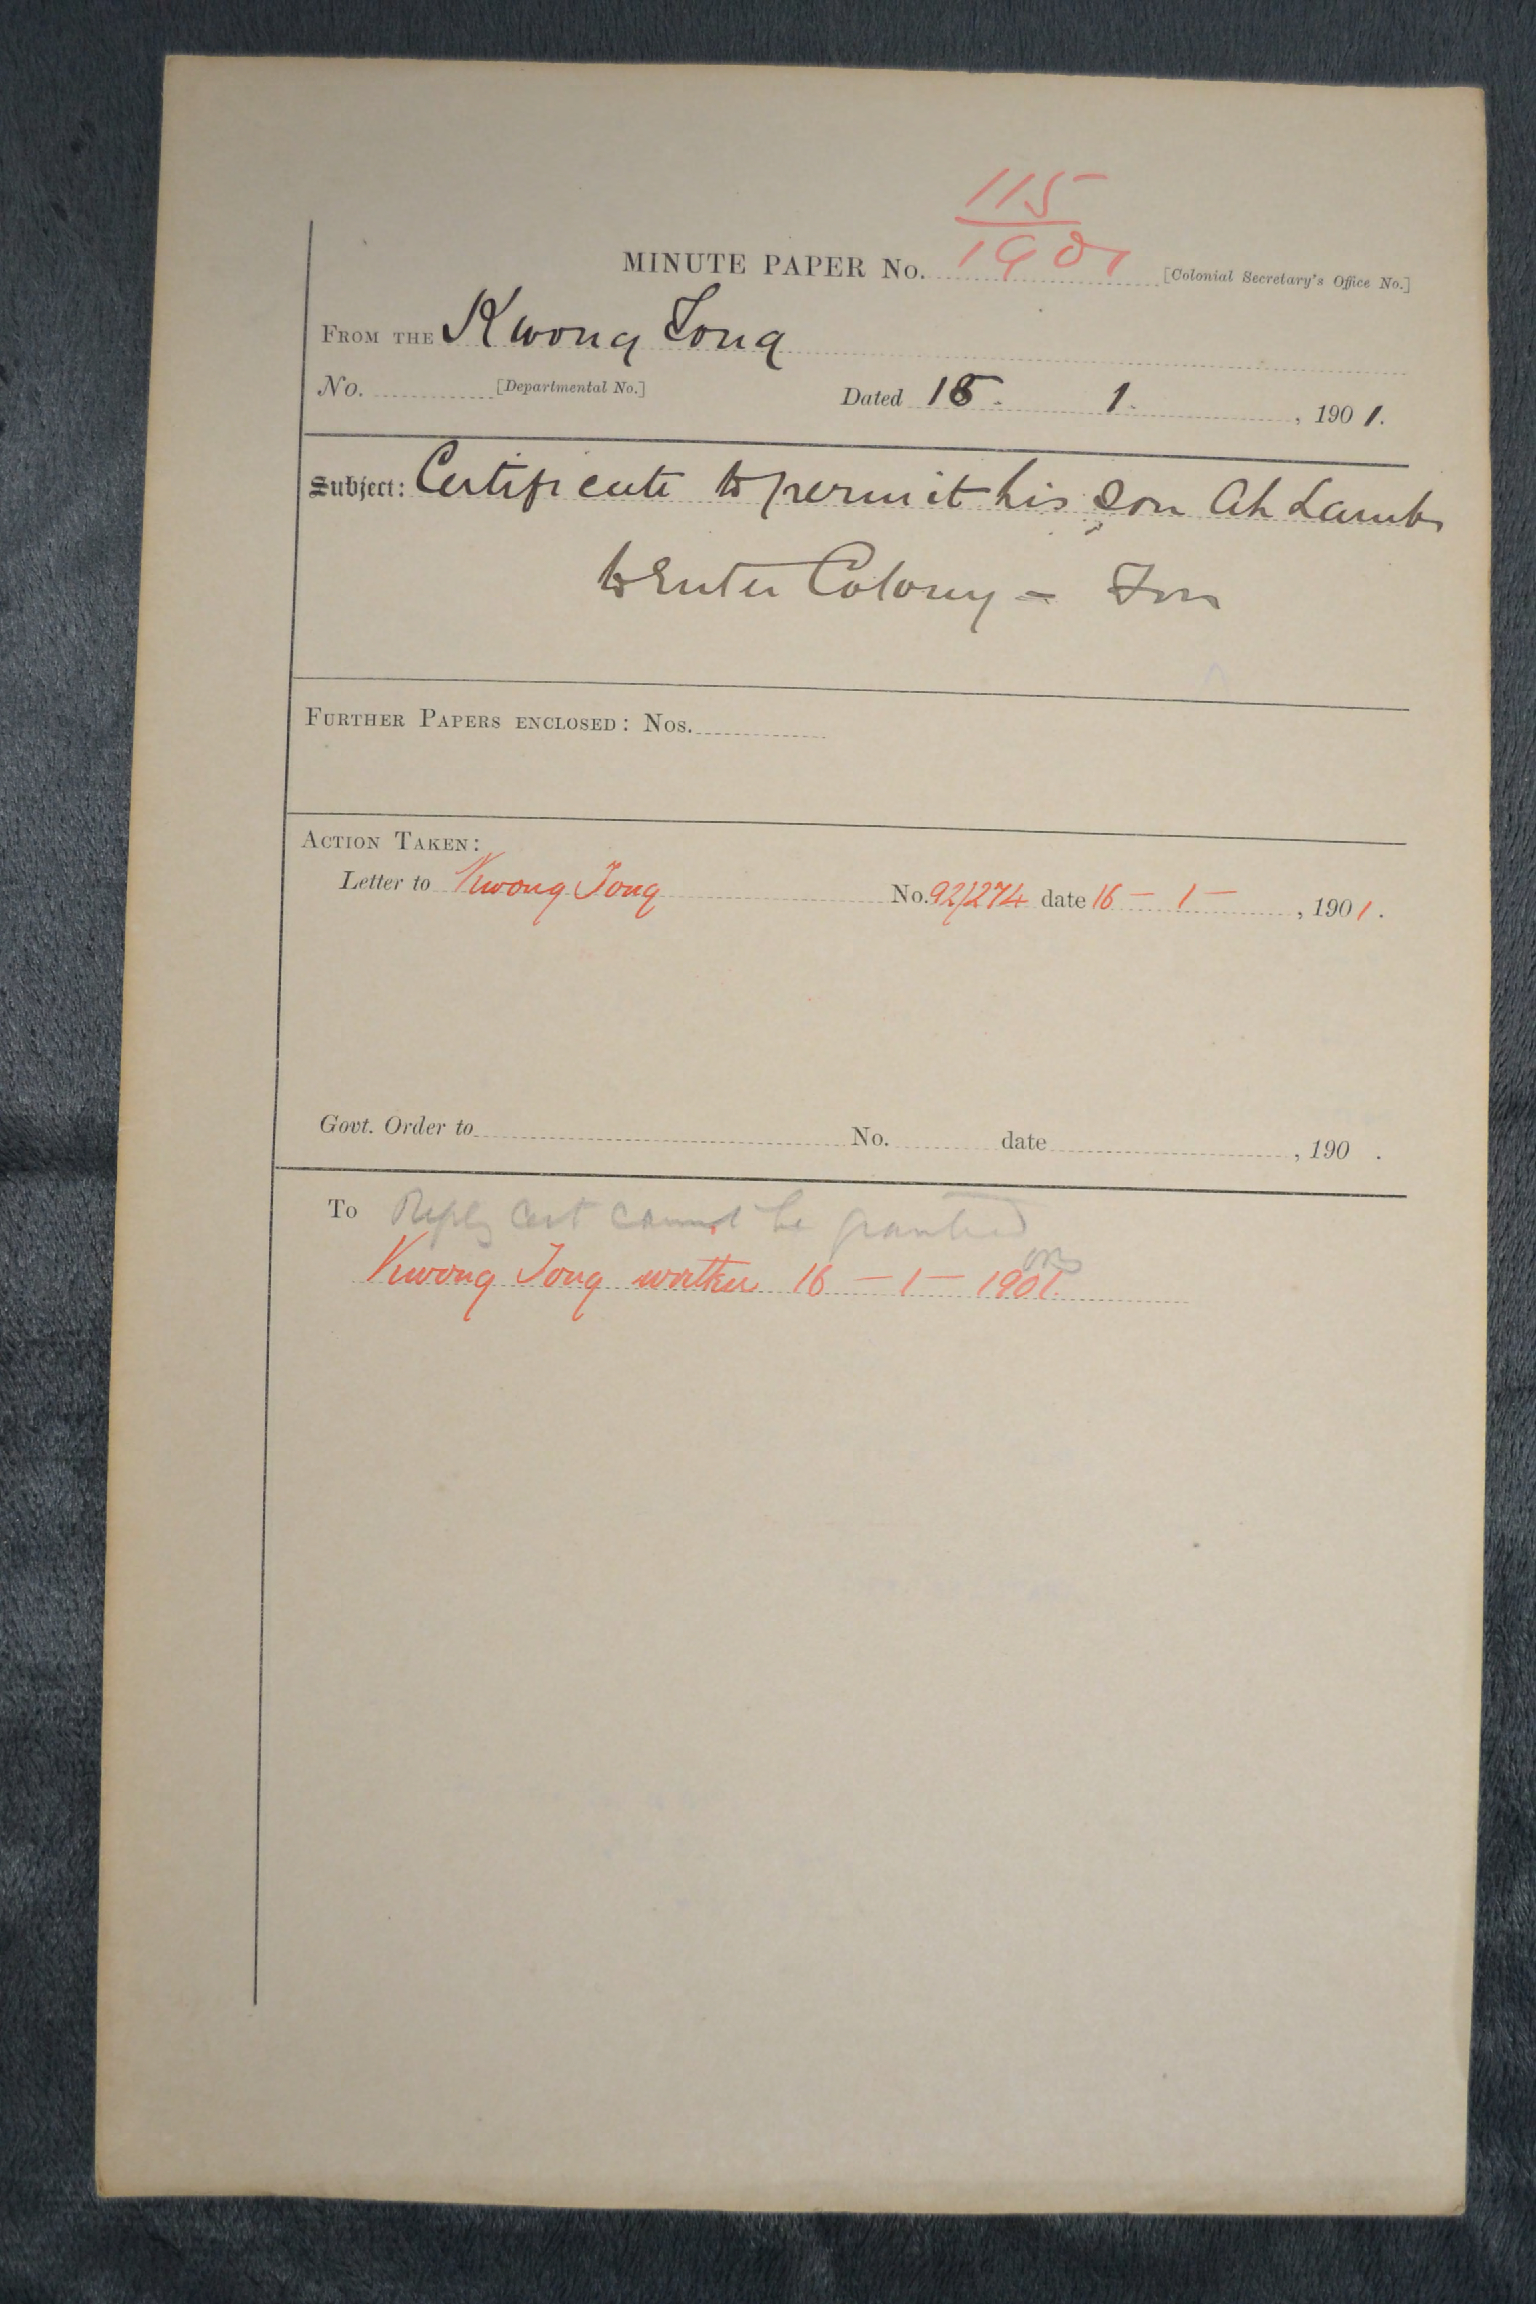 115
1901
MINUTE PAPER No. [Colonial Secretary's Office No.]
FROM THE Kwong Tong
No. [Departmental No.] Dated 15. 1. , 1901.
Subject: Certificate to permit his son Ah Lamb
to Enter Colony - For
FURTHER PAPERS ENCLOSED: Nos.
ACTION TAKEN:
Letter to Kwong Tong No. 92/274 date 16 - 1 - , 1901.
Govt. Order to No. date , 190 .
To Reply Cert cannot be granted
Kwong Tong written 16 - 1 - 1901.